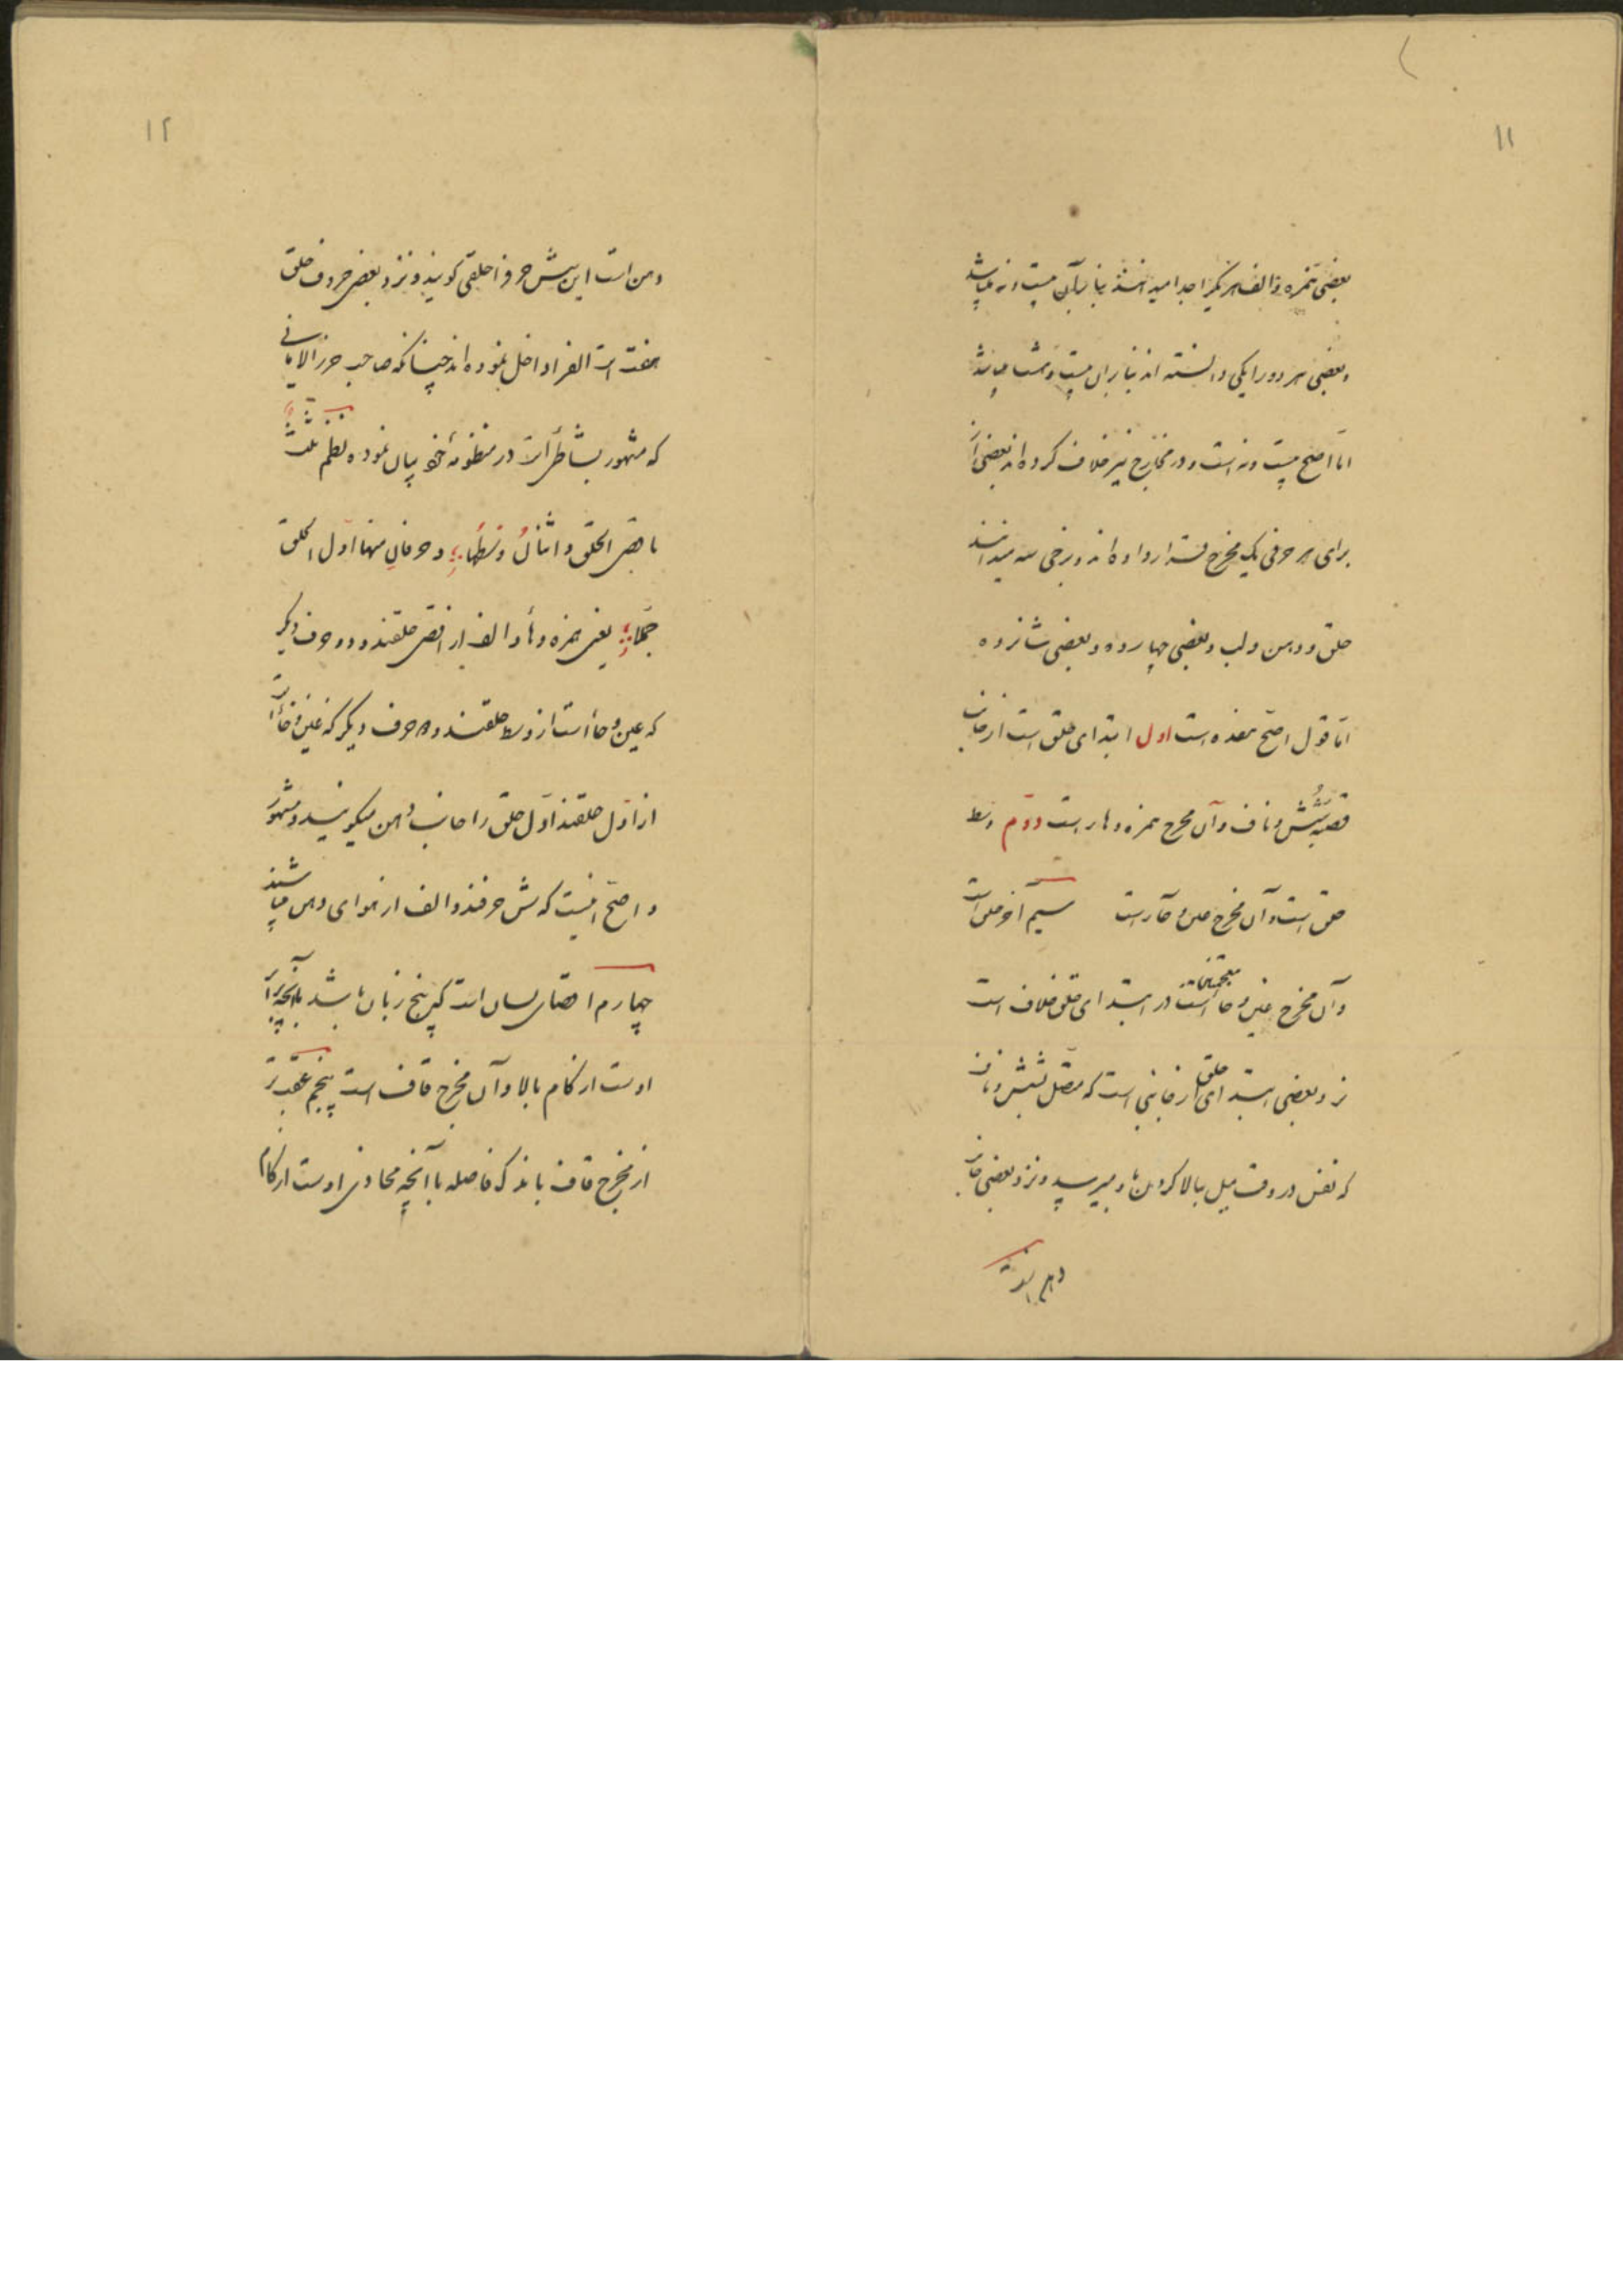 ۱۱
بعضی همزه و الف هر یک را جدا میدانند بنابرآن بیست و نه میباشد
و بعضی هر دو را یکی دانسته اند بنابران بیست و هشت میباشد
امّا اصح بیست و نه است و در مخارج نیز خلاف کرده اند بعضی از
برای هر حرفی یک مخرج قرار داده اند و برخی سه میدانند
حلق و دهن و لب و بعضی چهارده و بعضی شانزده
امّا قول اصحّ هفده است اول ابتدای حلق است از جانب
قصبه شش و ناف و آن مخرج همزه و هاء است دوّم وسط
حلق است و آن مخرج عین و حاء است سیم آخر حلق است
و آن مخرج غین و خاء معجمتین است در ابتدای حلق خلاف است
نزد بعضی ابتدای حلق از جانبی است که متصل بشش و ناف
که نفس در وقت میل ببالا کردن باو میرسد و نزد بعضی جانب
دهن است
۱۲
دهن است این شش حرف را حلقی گویند و نزد بعضی حروف حلق
هفت است الف را داخل نموده اند چنانکه صاحب حرز الامانی
که مشهور بشاطبی است در منظومهٔ خود بیان نموده نظم ثلث
باقصی الحلق و اثنان وسطها و حرفان منها اوّل الحلق
جمّلا یعنی همزه و هاء و الف از اقصی حلقند و دو حرف دیگر
که عین و حاء است از وسط حلقند و دو حرف دیگر که غین و خاء است
از اوّل حلقند اوّل حلق را جانب دهن میگویند و مشهور
و اصحّ اینست که شش حرفند و الف از هوای دهن میباشند
چهارم اقصای لسان است که بیخ زبان باشد بآنچه برابر
اوست از کام بالا و آن مخرج قاف است پنجم عقب تر
از مخرج قاف باندک فاصله با آنچه محاذی اوست از کام